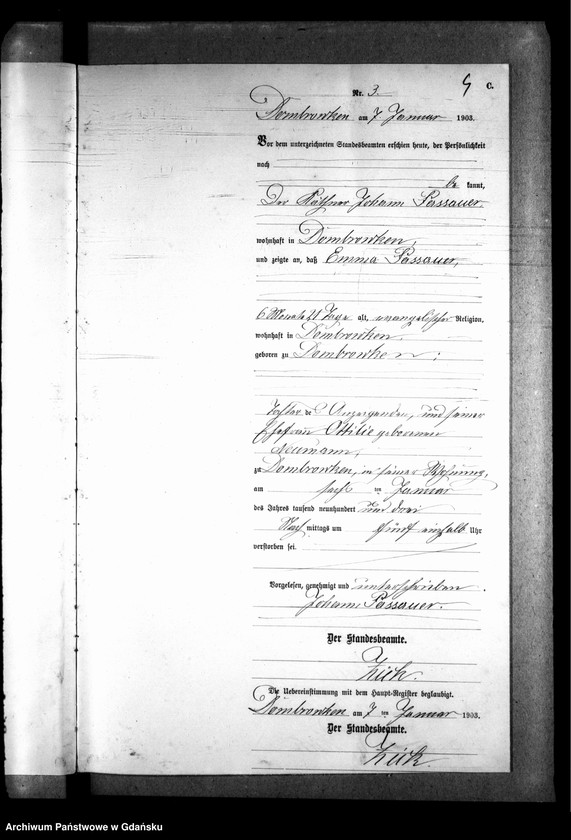 C.
Nr. 3.
Dombrowken am 7 Januar 1903.
Vor dem unterzeichneten Standesbeamten erschien heute, der Persönlichkeit
nach
be kannt,
Der Käthner Johann Passauer
wohnhaft in Dombrowken,
und zeigte an, daß Emma Passauer,
6 Monate 21 Tage alt, evangelischer Religion,
wohnhaft in Dombrowken,
geboren zu Dombrowken;
Tochter des Anzeigenden, und seiner
Ehefrau Ottilie geborenen
Neumann,
zu Dombrowken, in seiner Wohnung,
am ten Januar
des Jahres tausend neunhundert und drei
Nach mittags um fünf einhalb Uhr
verstorben sei.
Vorgelesen, genehmigt und unterschrieben.
Johann Passauer.
Der Standesbeamte.
Die Uebereinstimmung mit dem Haupt-Register beglaubigt.
Dombrowken am 7 ten Januar 1903.
Der Standesbeamte.
Archiwum Państwowe w Gdańsku